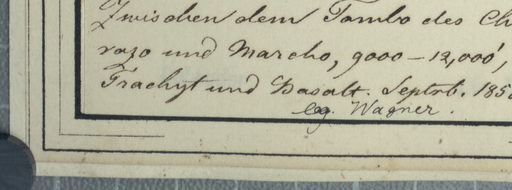 Zwischen dem Tambo des Ch
razo und Marcho, 9000 – 12,000',
Trachyt und Basalt. Septrb. 185
leg. Wagner.